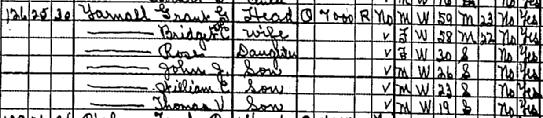 126 25 30 Yarnall Grant S Head O 7000 R No M W 59 M 23 No Yes
—— Bridget C Wife V F W 58 M 22 No Yes
—— Rose Daughter V F W 30 S No Yes
—— John J. Son V M W 26 S No Yes
—— William C Son V M W 23 S No Yes
—— Thomas V Son V M W 19 S No Yes